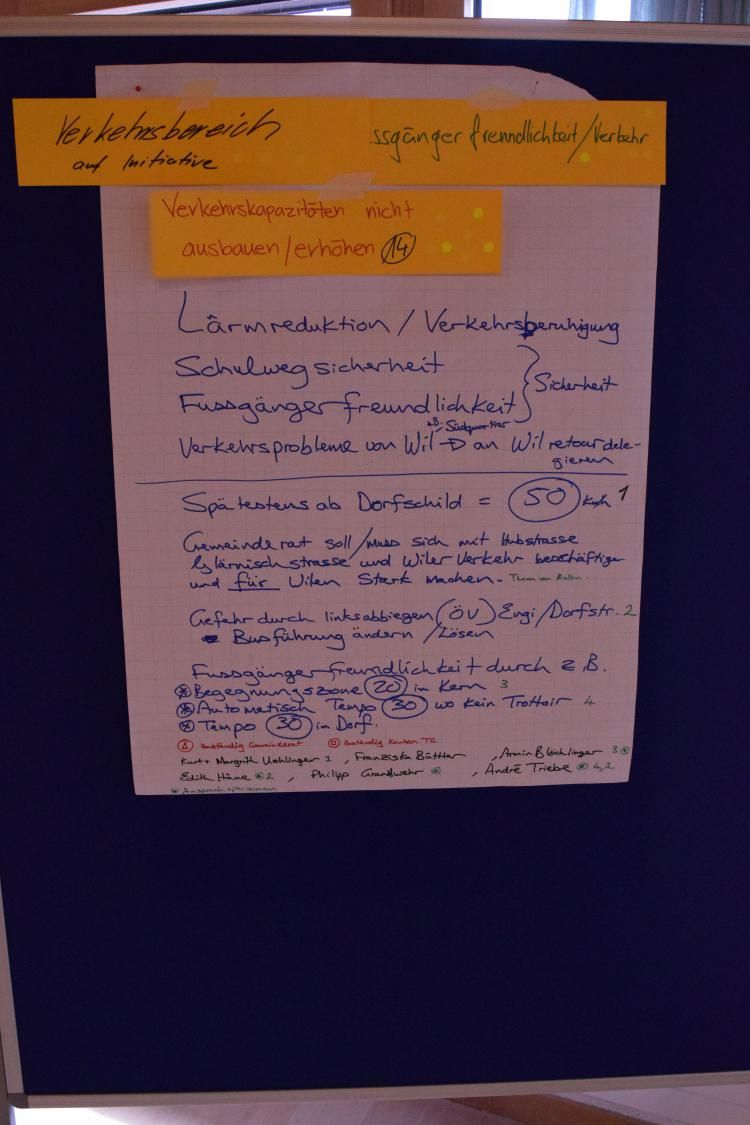 Verkehrsbereich
auf Initiative
ssgänger freundlichkeit/Verkehr
Verkehrskapazitäten nicht
ausbauen/erhöhen 14
Lärmreduktion / Verkehrsberuhigung
Schulwegsicherheit
Fussgängerfreundlichkeit } Sicherheit
z.B. Südquartier
Verkehrsprobleme von Wil → an Wil retour dele-
gieren
Spätestens ab Dorfschild = 50 km/h 1
Gemeinderat soll/muss sich mit Hubstrasse
Glärnischstrasse und Wiler Verkehr beschäftigen
und für Wilen Stark machen.
Gefahr durch linksabbiegen (ÖV) Engi/Dorfstr. 2
Busführung ändern / Lösen
Fussgängerfreundlichkeit durch z.B.
Begegnungszone 20 in Kern 3
Automatisch Tempo 30 wo kein Trottoir 4
Tempo 30 in Dorf.
zuständig Gemeinderat zuständig Kanton TG
Kurt + Margrith Uehlinger 1 , Franziska Büttler , Armin Blöchlinger 3
Edith Häne 2 , Philipp Grandwehr , André Triebe 4,2
* Ansprechpersonen